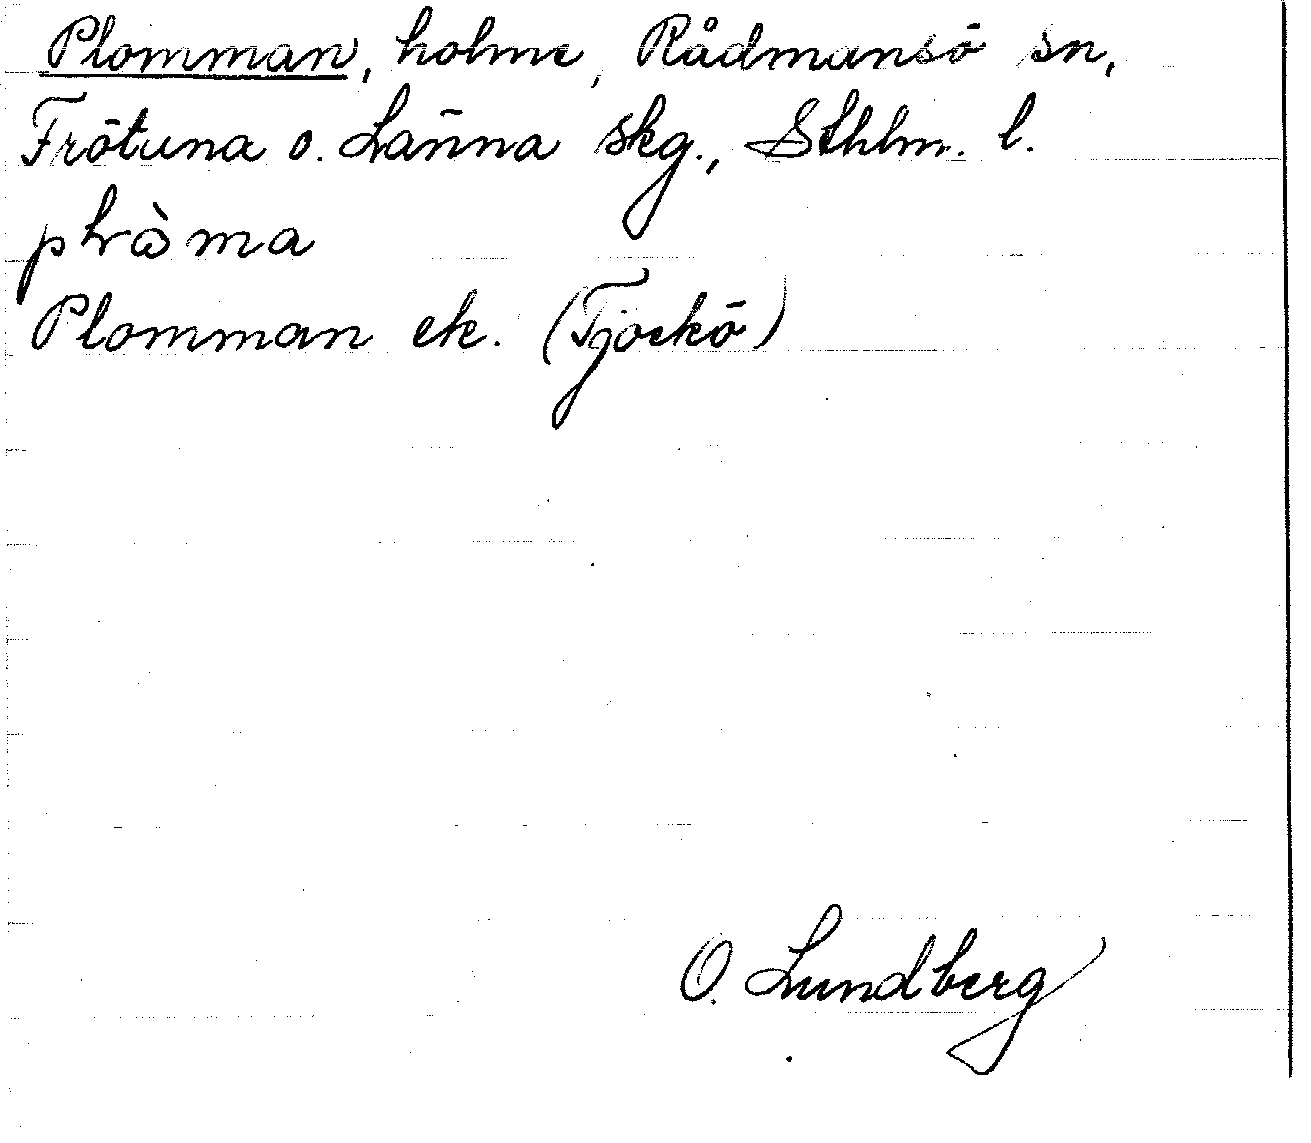 Plomman, holme, Rådmansö sn,
Frötuna o. Länna skg., Sthlm. l.
Plomman ek. (Tjockö)
O. Lundberg